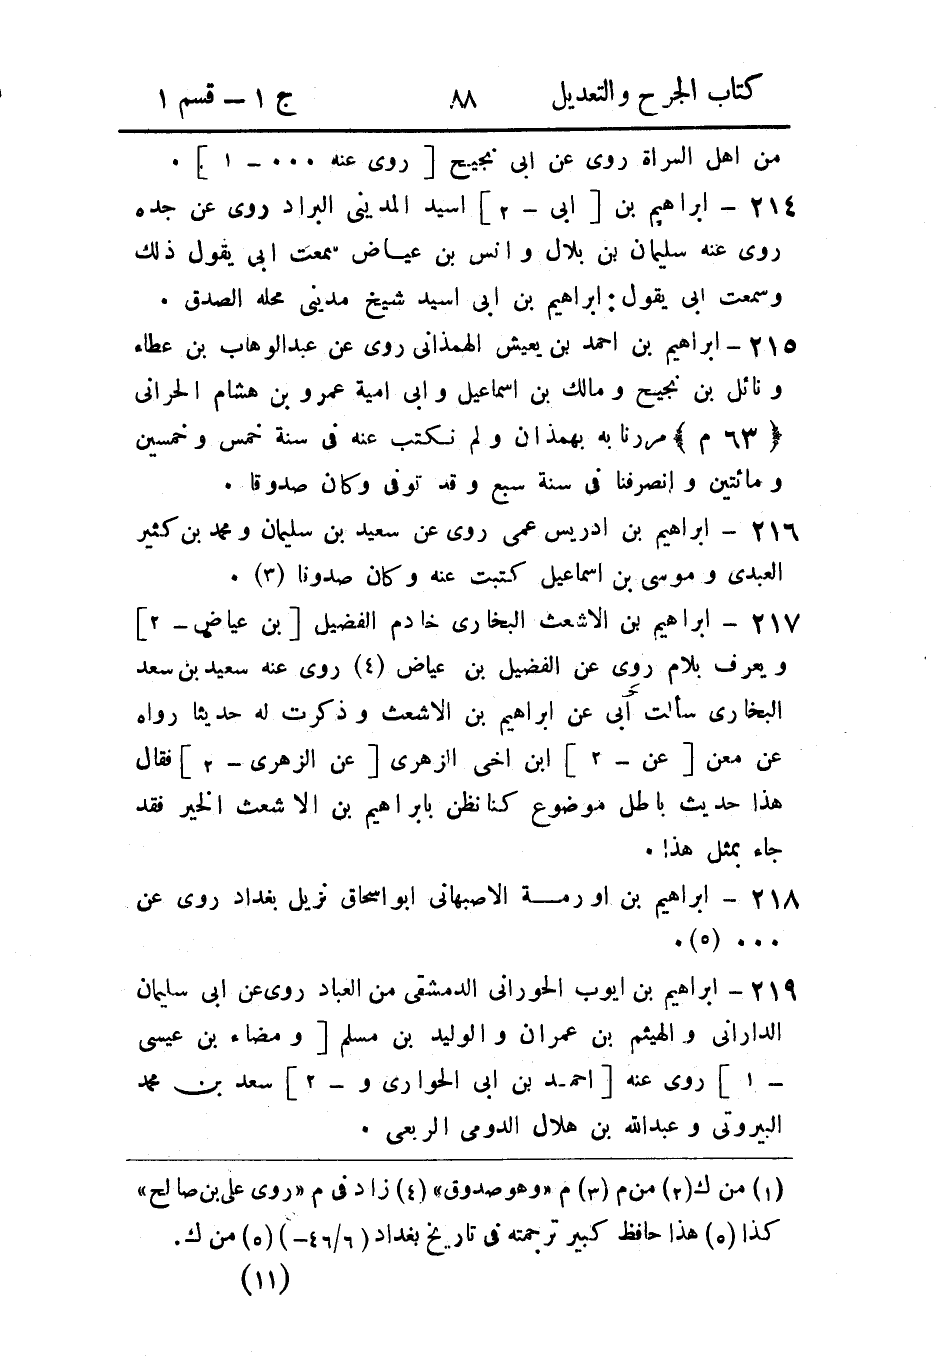 كتاب الجرح والتعديل ٨٨ ج ١ – قسم ١
من اهل السراة روى عن ابى نجيح [ روى عنه ٠٠٠ – ١ ] .
٢١٤ – ابراهيم بن [ ابى – ٢ ] اسيد المدينى البراد روى عن جده
روى عنه سليمان بن بلال و انس بن عياض سمعت ابى يقول ذلك
وسمعت ابى يقول : ابراهيم بن ابى اسيد شيخ مدينى محله الصدق .
٢١٥ – ابراهيم بن احمد بن يعيش الهمذانى روى عن عبدالوهاب بن عطاء
و نائل بن نجيح و مالك بن اسماعيل و ابى امية عمرو بن هشام الحرانى
﴿ ٦٣ م ﴾ مررنا به بهمذان و لم نكتب عنه فى سنة خمس و خمسين
و مائتين و انصرفنا فى سنة سبع و قد توفى وكان صدوقا .
٢١٦ – ابراهيم بن ادريس عمى روى عن سعيد بن سليمان و محمد بن كثير
العبدى و موسى بن اسماعيل كتبت عنه وكان صدوقا (٣) .
٢١٧ – ابراهيم بن الاشعث البخارى خادم الفضيل [ بن عياض – ٢ ]
و يعرف بلام روى عن الفضيل بن عياض (٤) روى عنه سعيد بن سعد
البخارى سألت أبى عن ابراهيم بن الاشعث و ذكرت له حديثا رواه
عن معن [ عن – ٢ ] ابن اخى الزهرى [ عن الزهرى – ٢ ] فقال
هذا حديث باطل موضوع كنا نظن بابراهيم بن الاشعث الخير فقد
جاء بمثل هذا .
٢١٨ – ابراهيم بن اورمة الاصبهانى ابواسحاق نزيل بغداد روى عن
٠٠٠ (٥) .
٢١٩ – ابراهيم بن ايوب الحورانى الدمشقى من العباد روى عن ابى سليمان
الدارانى و الهيثم بن عمران و الوليد بن مسلم [ و مضاء بن عيسى
– ١ ] روى عنه [ احمد بن ابى الحوارى و – ٢ ] سعد بن محمد
البيروتى و عبدالله بن هلال الدومى الربعى .
(١) من ك (٢) من م (٣) م «وهو صدوق» (٤) زاد فى م «روى على بن صالح»
كذا (٥) هذا حافظ كبير ترجمته فى تاريخ بغداد ( ٦/ ٤٦–) (٥) من ك.
(١١)